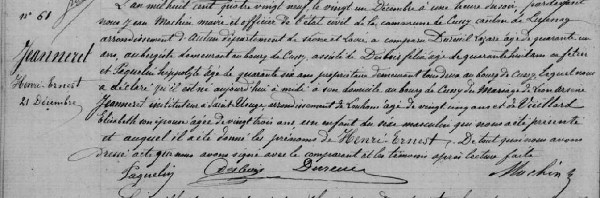 n° 61
Jeanneret
Henri-Ernest
21 Décembre
L'an mil huit cent quatre vingt neuf le vingt un Décembre à une heure du soir, pardevant
nous Jean Machin maire et officier de l'état civil de la commune de Cussy canton de Lucenay
arrondissement d'Autun département de Saône et Loire a comparu Lazare âgé de quarante un
ans, aubergiste demeurant au bourg de Cussy, assisté de Dubois félix âgé de quarante huit ans
et Laquelin hippolyte âgé de quarante six ans propriétaire demeurant tous deux au bourg de Cussy, Lequel nous
a déclaré qu'il est né aujourd'hui à midi à son domicile au bourg de Cussy du Mariage de
Jeanneret instituteur à Saint arrondissement de Louhans âgé de vingt cinq ans et de Vieillard
Elisabeth son épouse âgée de vingt trois ans un enfant du sexe masculin qui nous a été présenté
et auquel il a été donné les prénoms de Henri Ernest. De tout quoi nous avons
dressé acte que nous avons signé avec le comparant et les témoins après lecture faite
Laquelin Dubois Machin